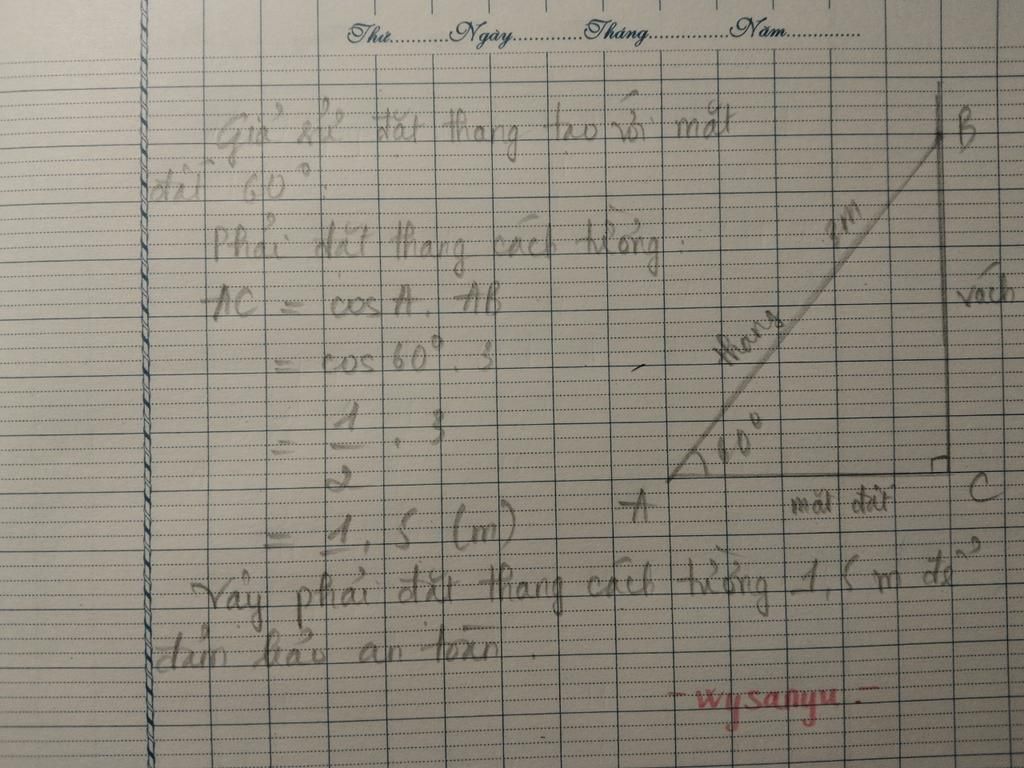 Thứ...........Ngày.............Tháng...............Năm..............
Giả sử đặt thang tạo với mặt
đất 60°.
Phải đặt thang cách tường:
AC = cosA. AB
= cos60°. 3
= 1/2 . 3
= 1,5 (m)
Vậy phải đặt thang cách tường 1,5 m để
đảm bảo an toàn.
B
3m
vách
thang
60°
A
mặt đất
C
- wysanyu -